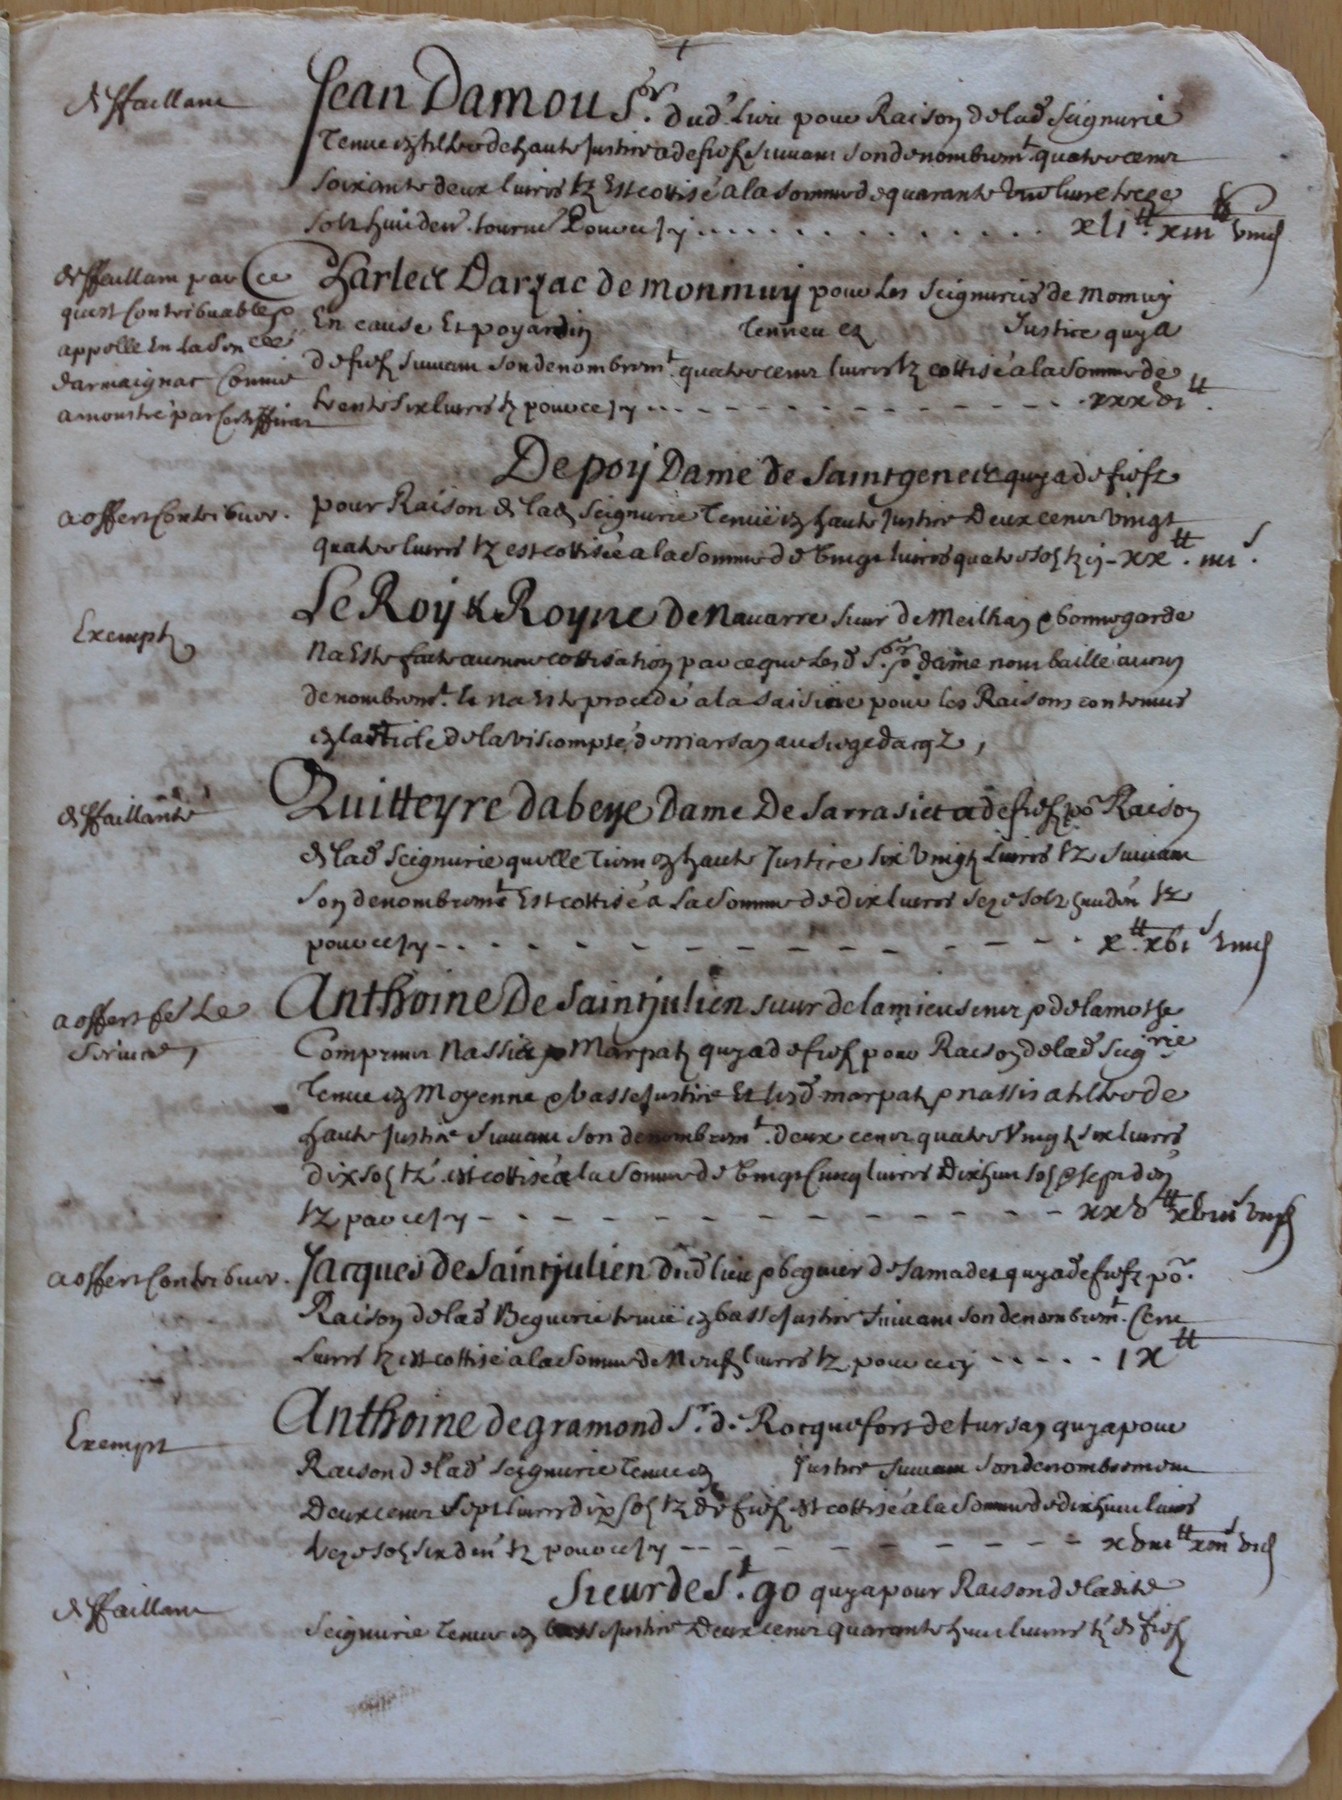 deffaillant
Jean Damou Sr. dud. Lieu pour Raison de lad. Seignurie
Tenue en tiltre de haute Justice a de fief suivant son denombremt. quatre cens
soixante deux livres tz Est cottisé a la somme de quarante une livre treze
solz huit den. tourn. Pour cecy xlitt. xiiis viiid
deffaillant par ce
quest Contribuable &
appelle En La Sen.cee
darmaignac Comme
a monstré par Certifficat
Charles Darzac de monmuy pour Les Seignuries de Momuy
En cause Et poyardin Tenneu en Justice quy a
de fief suivant son denombremt. quatre cens livres tz cottisé a la Somme de
trente six livres tz pour cecy xxxvitt.
a offert Contribuer.
De poy Dame de Saint genez quy a de fiefz
pour Raison de lad. Seignurie Tenuë en haute Justice Deux cens vingt
quatre livres tz est cottisée a la Somme de vingt livres quatre solz tz cy - xxtt. iiiis.
Exempt
Le Roy & Royne De Navarre sieur de Meilhan & bonnegarde
Na Este faite aucune cottisation par ce que Lesd. Sr. & dame nont baillé aucun
denombremt. Et na Este procedé a la saisine pour les Raisons contenues
en larticle de la viscompté de marsan au siege dacqz,
deffaillante
Quitteyre dabeye Dame De Sarrasiet a de fief po. Raison
de lad. Seignurie quelle Tient en haute Justice six vingtz Livres tz suivant
son denombremt. Est cottisé a La Somme de dix livres seze solz huit den. tz
pour cecy xtt. xvis viiid
a offert fe. Le
service,
Anthoine De Saint julien sieur de lamieusens & de lamothe
Comprins Nassiet & Marpatz quy a de fief pour Raison de lad. Seigrie
Tenue en Moyenne & basse Justice Et lesd. marpatz & nassis a tiltre de
haute Justice suivant son denombremt. deux cens quatre vingtz six livres
dix solz tz. est cottisé a la Somme de vingt cincq livres Dix huit solz & sept den.
tz par cecy xxvtt xviiis viid
a offert Contribuer.
Jacques de Saint julien dud. lieu & beguier de Samadet quy a de fiefz po.
Raison de lad. Beguerie tenuë en basse Justice suivant son denombremt. Cent
Livres tz est cottisé a la Somme de Neuf livres tz pour cecy ixtt
Exempt
Anthoine de gramond Sr. de Rocquefort de tursan quy a pour
Raison de lad. Seignurie Tenue en Justice suivant son denombrement
Deux cens sept livres dix solz tz de fief est cottisé a la Somme de dix huit livres
treze solz six den. tz pour cecy xviiitt xiiis vid
deffaillant
Sieur de St. go quy a pour Raison de ladite
Seignurie Tenue en basse Justice Deux cens quarante huit livres tz de fief